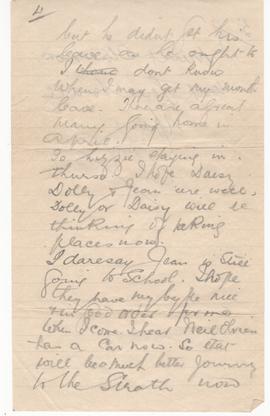 4
but he didn't get his
leave as he ought to
I dont know
when I may get my month
leave. There are a great
many going home in
April.
So Lizzie staying in
Thurso I hope Daisy
Dolly & Jean are well.
Dolly or Daisy will be
thinking of taking
places now.
I daresay Jean is still
going to School. I hope
they have my bype nice
& in good order for me
When I come I hear Neil
has a Car now. So that
will be much better journey
to the Strath now